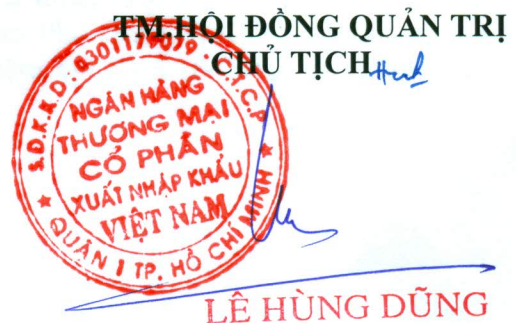 TM.HỘI ĐỒNG QUẢN TRỊ
CHỦ TỊCH
S.Đ.K.K.D: 0301179079 - C.T.C.P
NGÂN HÀNG
THƯƠNG MẠI
CỔ PHẦN
XUẤT NHẬP KHẨU
VIỆT NAM
QUẬN 1 TP. HỒ CHÍ MINH
LÊ HÙNG DŨNG